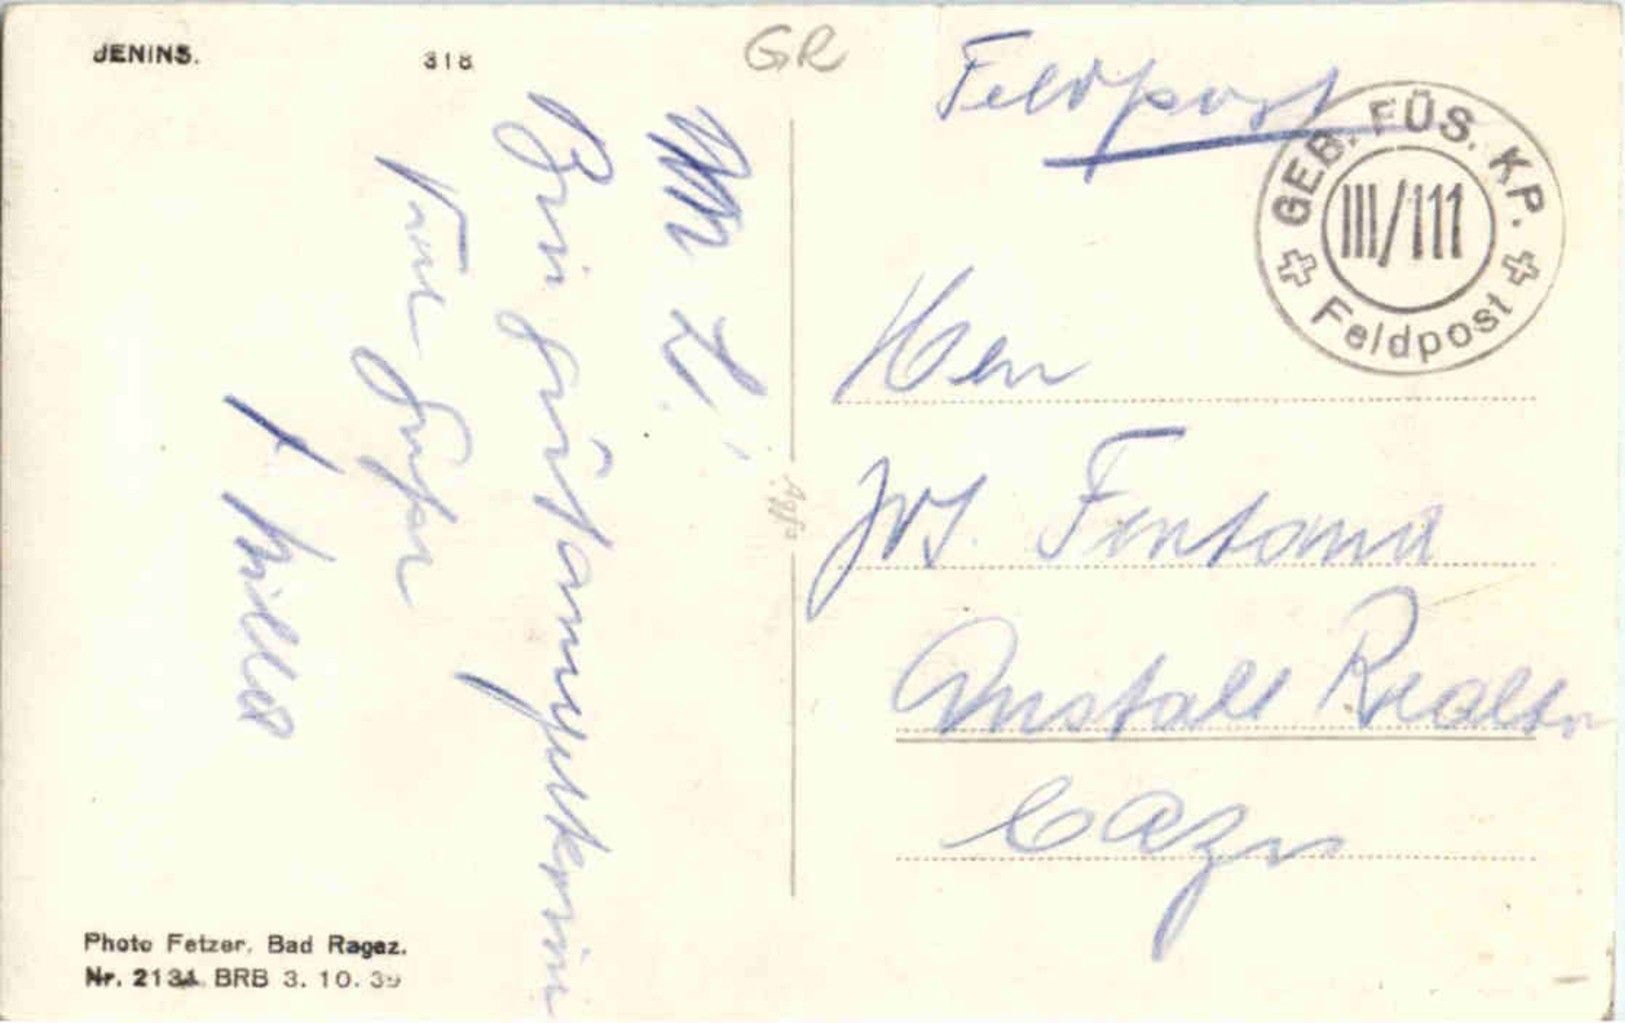 JENINS. 318
GR
M L!
Bin gut angekommen
Viele Grüsse
Feldpost
GEB. FÜS. KP.
III/111
Feldpost
Herr
Jos. Fontana
Anstalt Realta
Cazis
Photo Fetzer, Bad Ragaz.
Nr. 2134 BRB 3. 10. 39